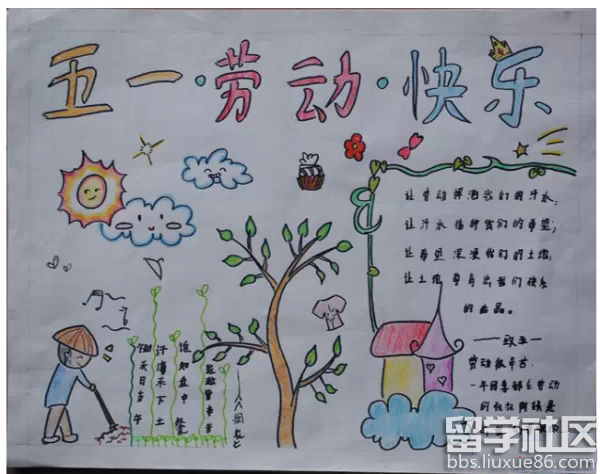 五一·劳动·快乐
让劳动挥洒我们的汗水,
让汗水播种我们的希望;
让希望深浸我们的土地,
让土地孕育出我们快乐
的 品。
——致五一
劳动最辛苦
一年四季都在劳动
的
是
锄禾日当午
汗滴禾下土
谁知盘中餐
粒粒皆辛苦
留学社区
bbs.liuxue86.com